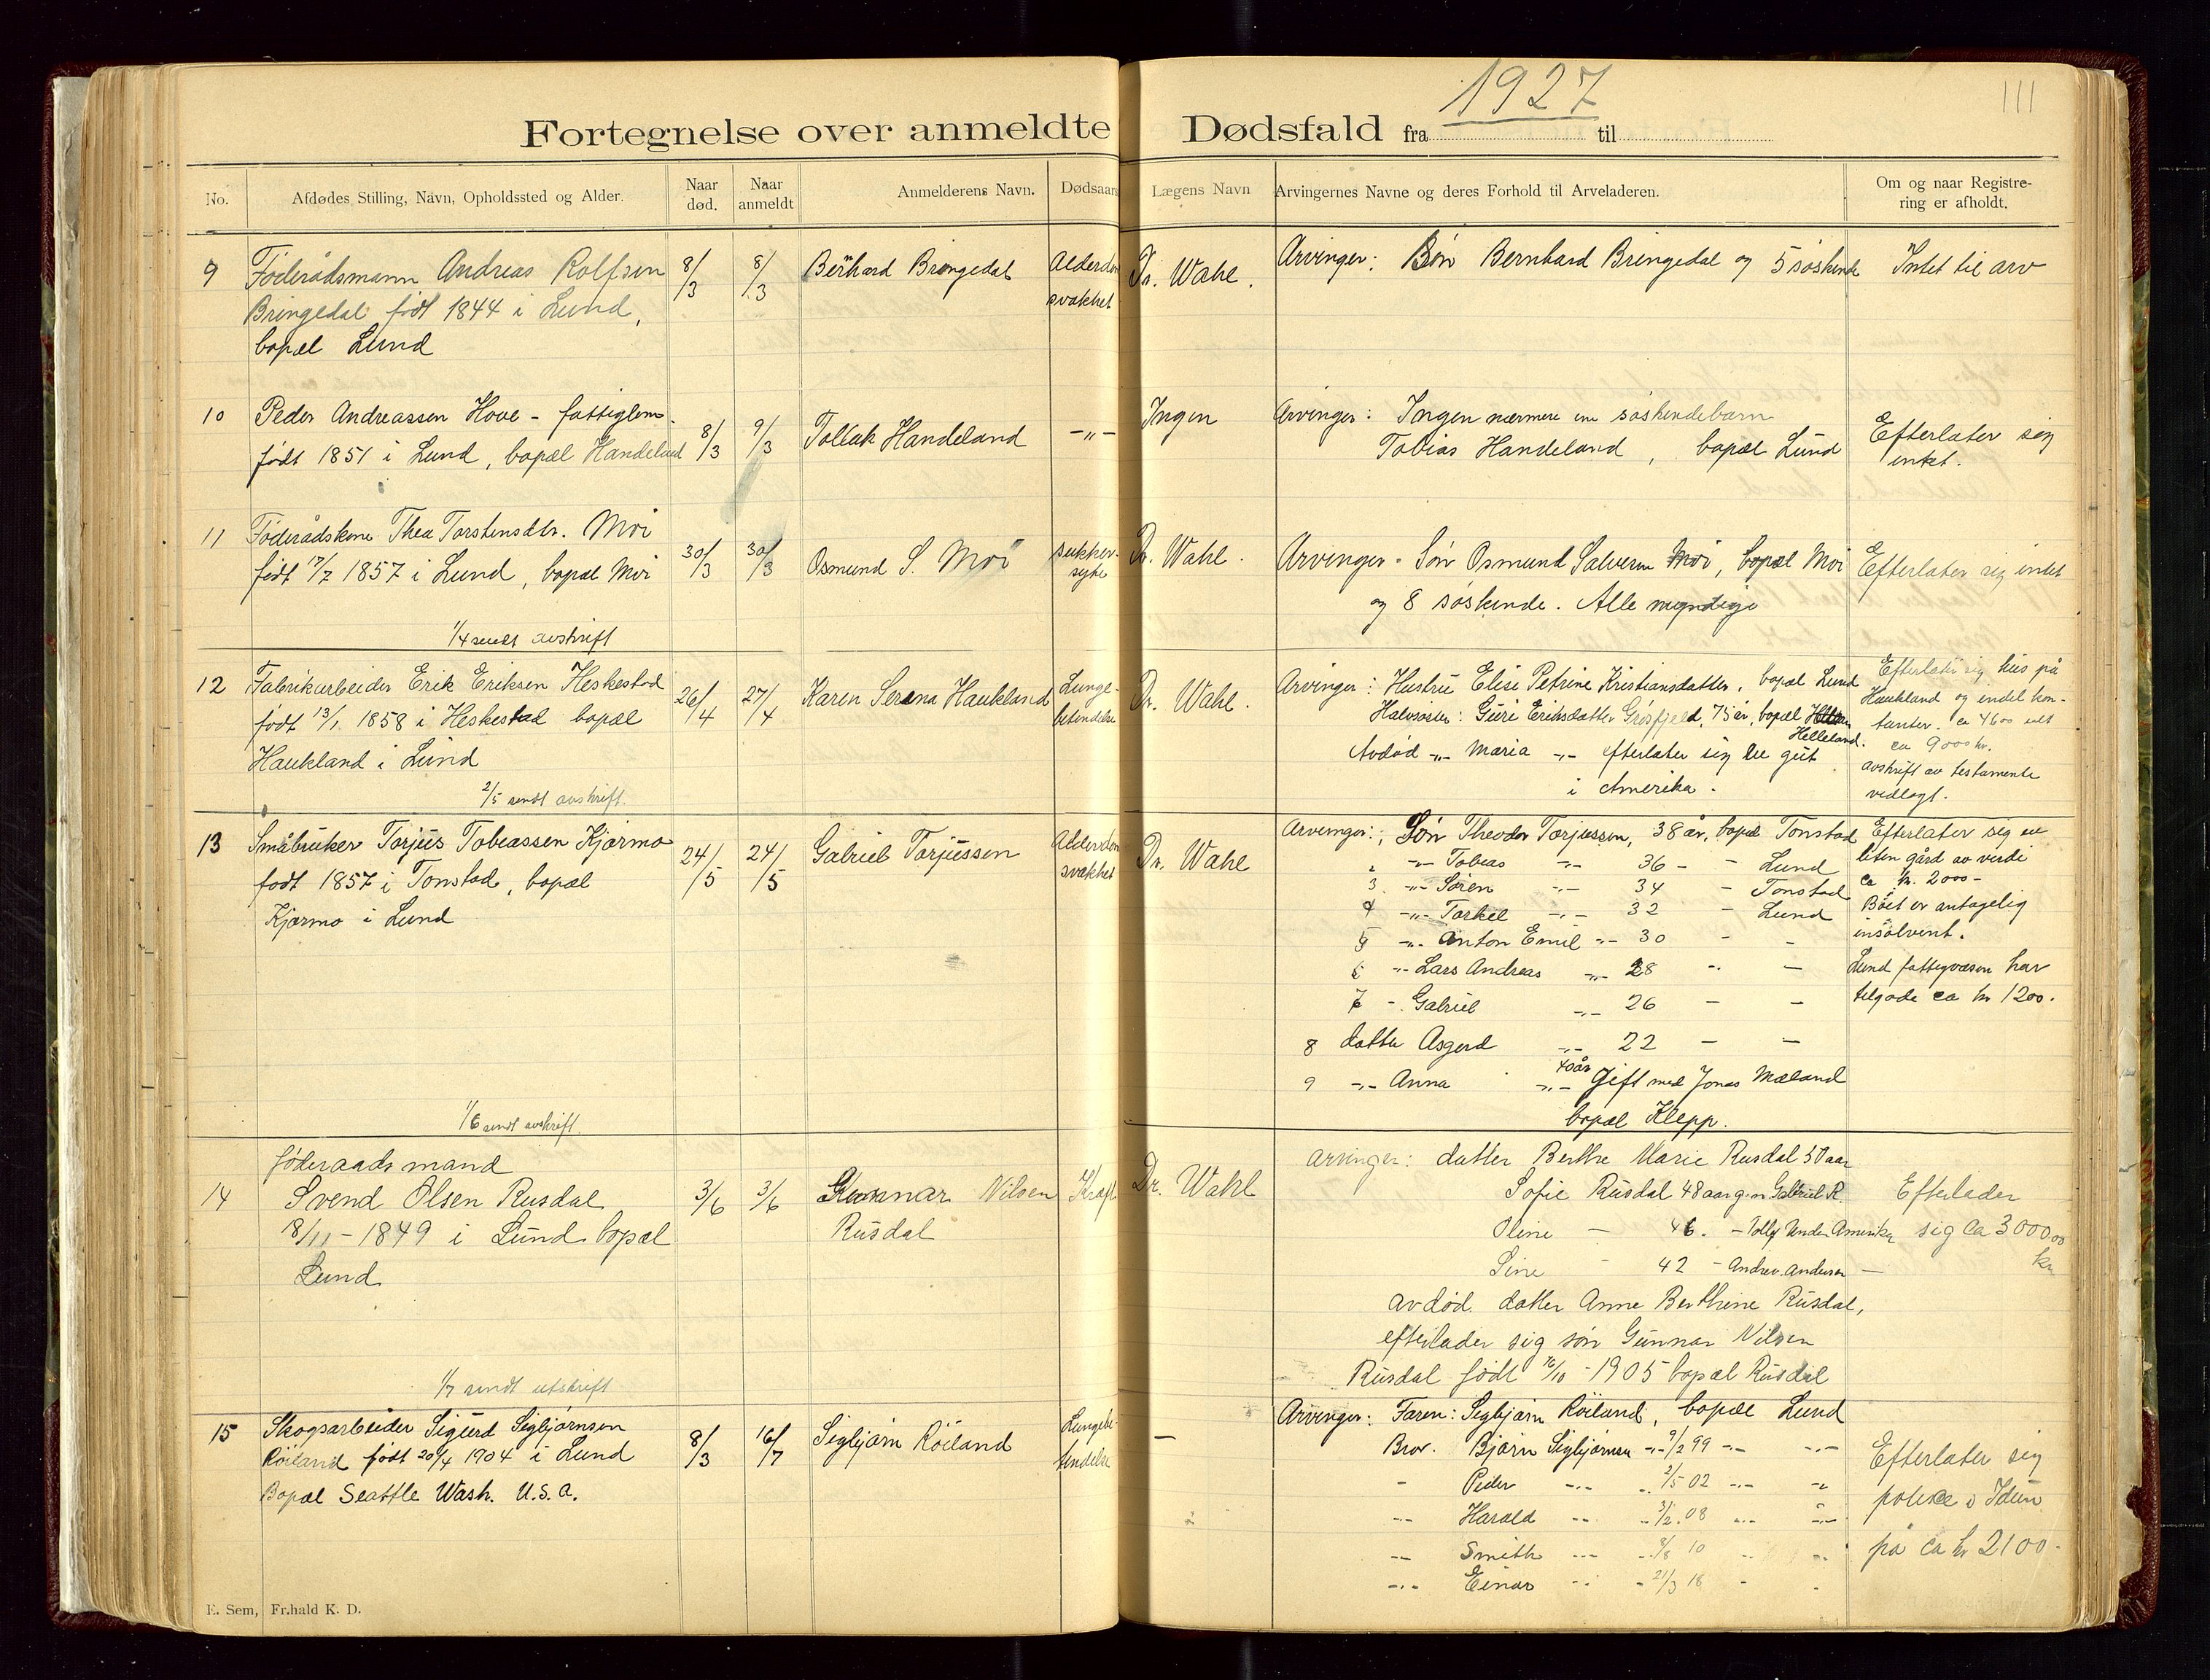 1927
111
Fortegnelse over anmeldte Dødsfald fra til
No.
Afdødes Stilling, Navn, Opholdssted og Alder.
Naar død.
Naar anmeldt
Anmelderens Navn.
Dødsaars
Lægens Navn
Arvingernes Navne og deres Forhold til Arveladeren.
Om og naar Registre-
ring er afholdt.
9 Föderådsmann Andreas Rolfsen
Bringedal født 1844 i Lund,
bopæl Lund
8/3 8/3 Bernhard Bringedal
Alderdom
svakhet
Dr. Wahl.
Arvinger: Søn Bernhard Bringedal og 5 søskende
Intet til arv
10 Peder Andreassen Hove - fattiglem.
født 1851 i Lund, bopæl Handeland
8/3 9/3 Tollak Handeland -"-
Ingen
Arvinger: Ingen nærmere enn søskendebarn
Tobias Handeland, bopæl Lund
Efterlater sig
intet.
11 Föderådskone Thea Torstensdtr. Moi
født 17/7 1857 i Lund, bopæl Moi
30/3 30/3 Osmund S. Moi
sukker-
syke
Dr. Wahl.
Arvinger - Søn Osmund Salvesen Moi, bopæl Moi
og 8 søskende. Alle myndige
Efterlater sig intet
1/4 sendt avskrift
12 Fabrikarbeider Erik Eriksen Heskestad
født 13/1 1858 i Heskestad bopæl
Haukland i Lund
26/4 27/4 Karen Serena Haukland
Lunge-
betendelse
Dr. Wahl.
Arvinger: Hustru Elise Petrine Kristiansdatter, bopæl Lund
Halvsøster: Guri Eriksdatter Grøsfjeld, 75 år, bopæl
Helleland.
Avdød -"- Maria -"- efterlater sig en gut
i Amerika.
Efterlater sig hus på
Haukland og endel kon-
tanter. ca 4600 alt
ca 9000 kr.
avskrift av testamente
vedlagt.
2/5 sendt avskrift.
13 Småbruker Torjus Tobiassen Kjørmo
født 1857 i Tonstad, bopæl
Kjørmo i Lund
24/5 24/5 Gabriel Torjussen
Alderdom
svakhet
Dr. Wahl
Arvinger: Søn Theodor Torjussen, 38 år, bopæl Tonstad
2 -"- Tobias -"- 36 - - Lund
3. -"- Søren -"- 34 - Tonstad
4 -"- Torkel -"- 32 - Lund
5 -"- Anton Emil -"- 30 - -
6 -"- Lars Andreas -"- 28 -
7 - Gabriel -"- 26 - -
8 datter Asgerd -"- 22 - -
9 -"- Anna -"- 40 år Gift med Jonas Mæland
bopæl Klepp.
Efterlater sig en
liten gård av verdi
ca kr. 2000-
Bøet er antagelig
insolvent.
Lund fattigvæsen har
tilgode ca kr 1200.
1/6 sendt avskrift.
föderaadsmand
14 Svend Olsen Rusdal
18/11 - 1849 i Lund bopæl
Lund
3/6 3/6 Gunnar Nilsen
Rusdal
Kræft
Dr. Wahl
Arvinger: datter Berthe Marie Rusdal 50 aar
Sofie Rusdal 48 aar g.m Gabriel R.
Oline - 46. - Amerika
Sine - 42 - Andrev. Andersen -
avdød datter Anne Berthine Rusdal,
efterlader sig søn Gunnar Nilsen
Rusdal født 16/10 - 1905 bopæl Rusdal
Efterlader
sig ca 3000,00
kr
1/7 sendt utskrift
15 Skogsarbeider Sigurd Sigbjørnsen
Röiland født 20/4 1904 i Lund
Bopæl Seattle Wash. U.S.A.
8/3 16/7 Sigbjørn Röiland
Lungebe-
tendelse
-
Arvinger: Faren: Sigbjørn Röiland, bopæl Lund
Bror. Bjørn Sigbjørnsen -"- 9/2 99 -"- -"-
- Peder -"- 2/5 02 -"- -"-
-"- Harald -"- 3/2. 08 -"- -"-
-"- Smith -"- 8/8 10
-"- Einar -"- 21/3 18 -
Efterlater sig
police i Idun
på ca kr 2100-
E. Sem, Fr.hald K. D.